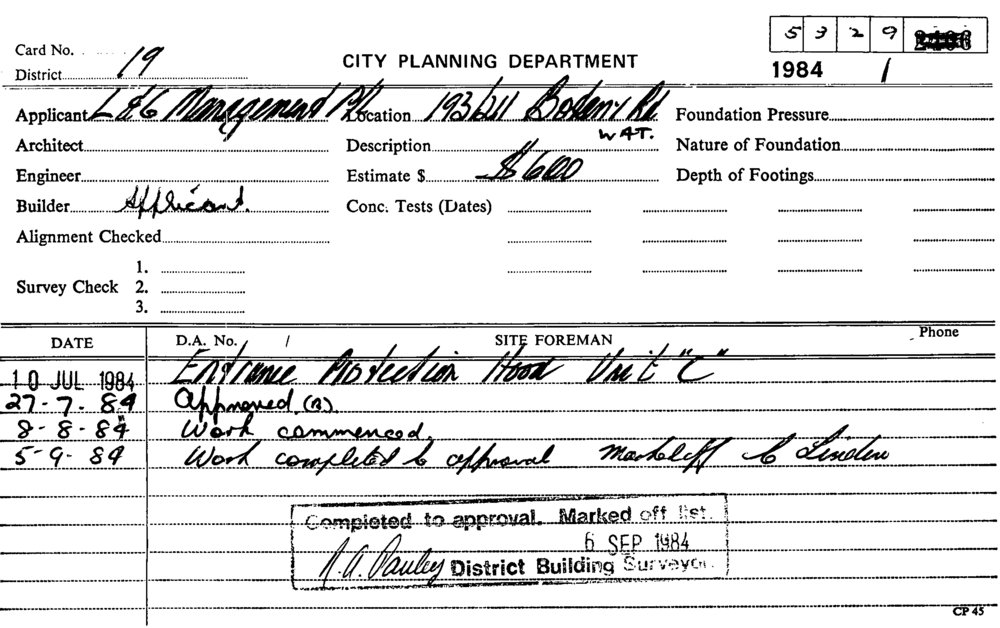 5 3 2 9
Card No. 19
District
CITY PLANNING DEPARTMENT
1984 /
Applicant L & G Management P/L Location 193/211 Botany Rd Foundation Pressure
W4T.
Architect Description Nature of Foundation
Engineer Estimate $ $600 Depth of Footings
Builder Applicant. Conc. Tests (Dates)
Alignment Checked
1.
Survey Check 2.
3.
DATE D.A. No. / SITE FOREMAN Phone
10 JUL 1984 Entrance Protection Hood Unit "C"
27-7-84 Approved. (B)
8-8-84 Work commenced.
5-9-84 Work completed to approval C Linden
Completed to approval. Marked off list.
6 SEP 1984
District Building Surveyor.
CP 45